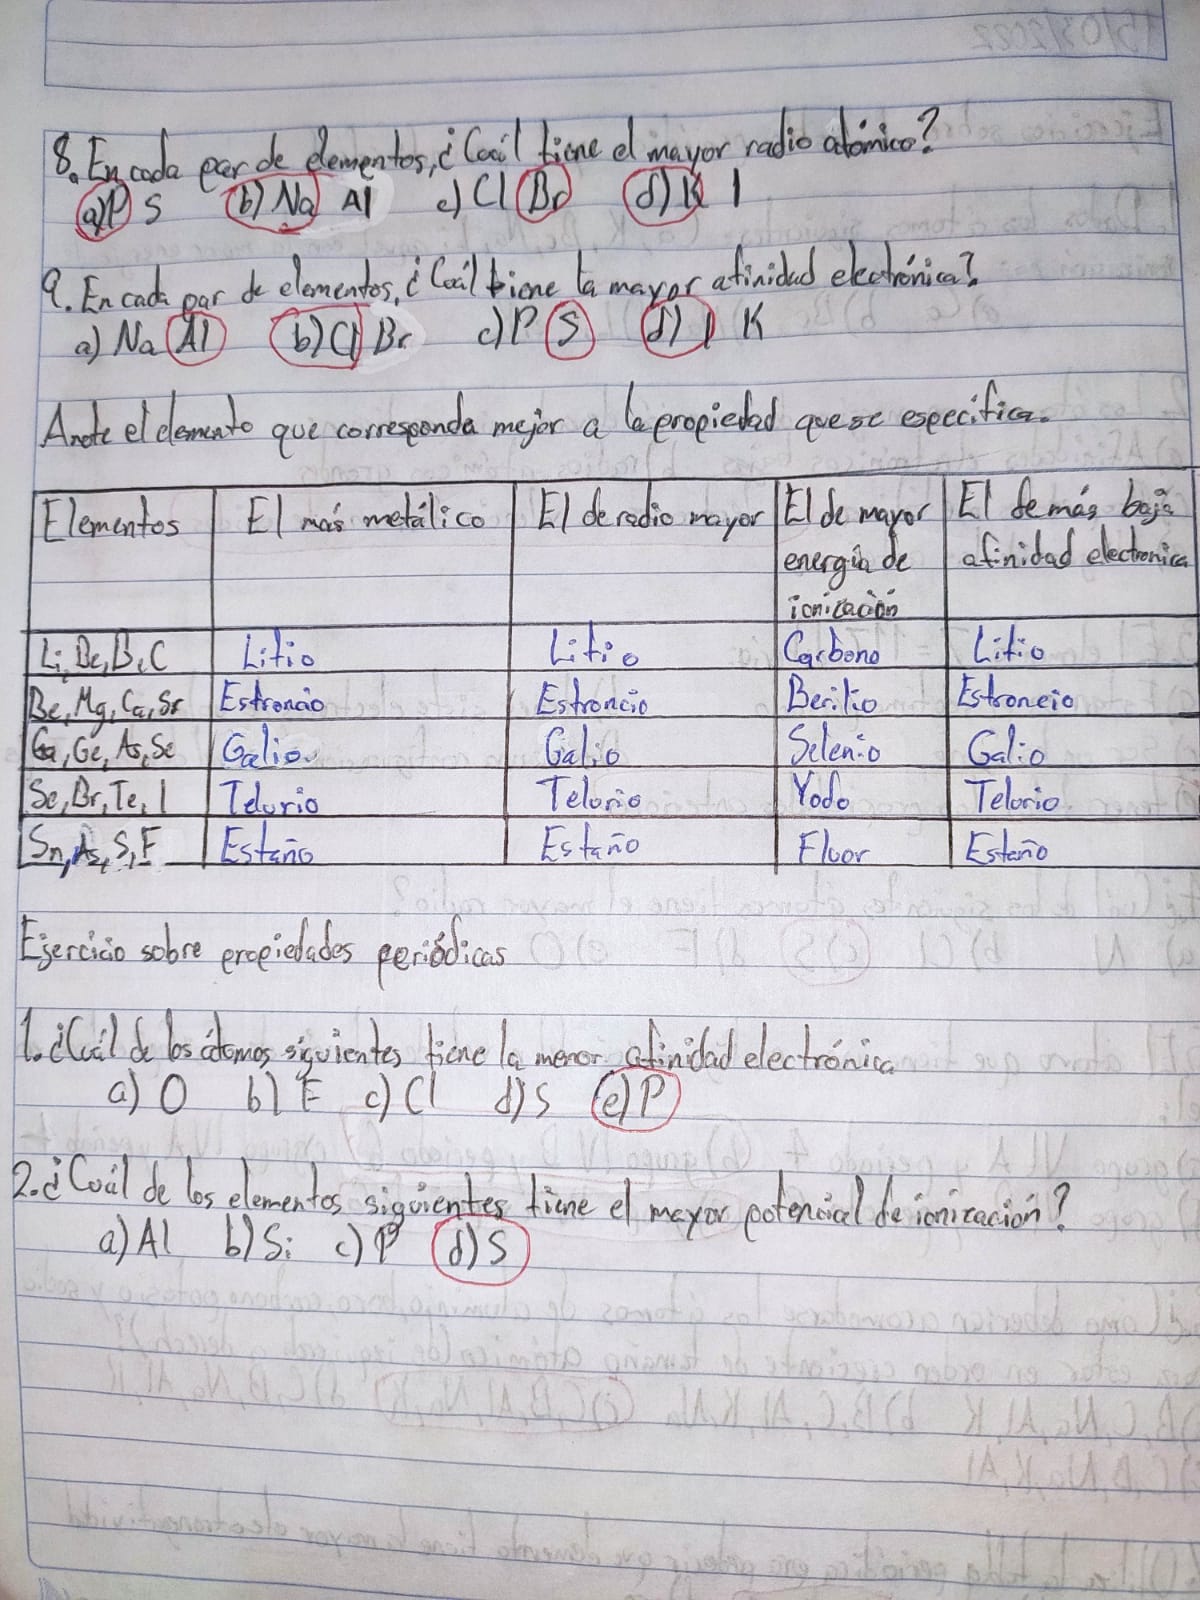 8. En cada par de elementos, ¿Cuál tiene el mayor radio atómico?
a) P S b) Na Al c) Cl Br d) K I
9. En cada par de elementos, ¿Cuál tiene la mayor afinidad electrónica?
a) Na Al b) Cl Br c) P S d) I K
Anote el elemento que corresponda mejor a la propiedad que se especifica.
Elementos El más metálico El de radio mayor El de mayor energía de ionización El de más baja afinidad electronica
Li, Be, B, C Litio Litio Carbono Litio
Be, Mg, Ca, Sr Estroncio Estroncio Berilio Estroncio
Ga, Ge, As, Se Galio Galio Selenio Galio
Se, Br, Te, I Telurio Telurio Yodo Telurio
Sn, As, S, F Estaño Estaño Fluor Estaño
Ejercicio sobre propiedades periódicas
1. ¿Cuál de los átomos siguientes tiene la menor afinidad electrónica
a) O b) F c) Cl d) S e) P
2. ¿Cuál de los elementos siguientes tiene el mayor potencial de ionización?
a) Al b) Si c) P d) S